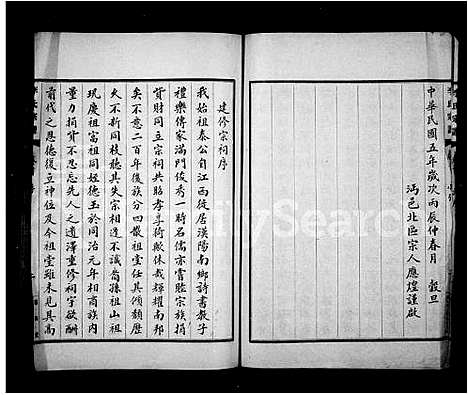 中華民國五年歲次丙辰仲春月 穀旦
沔邑北區宗人應煌謹啟
建修宗祠序
我始祖泰公自江西徙居漢陽南鄉詩書教子
禮樂傳家滿門俊秀一時名儒亦嘗睦宗族捐
貲財同立宗祠共昭孝享猗歟休哉輝耀南邦
矣不意二百年後族分四散祖堂任其傾頹歷
久不振聽其失宗相逢不識為孫祖山祖
玩慶祖富祖同姪德玉於同治元年相商族內
量力捐貲不忍忘先人之遺澤重修祠宇欲酬
前代之恩德復立神位及今祖堂雖未見其高
FamilySearch